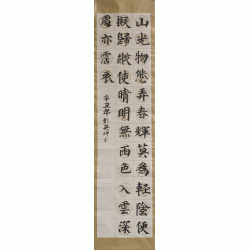 山光物態弄春輝莫為輕陰便
擬歸縱使晴明無雨色入雲深
處亦霑衣
辛丑年